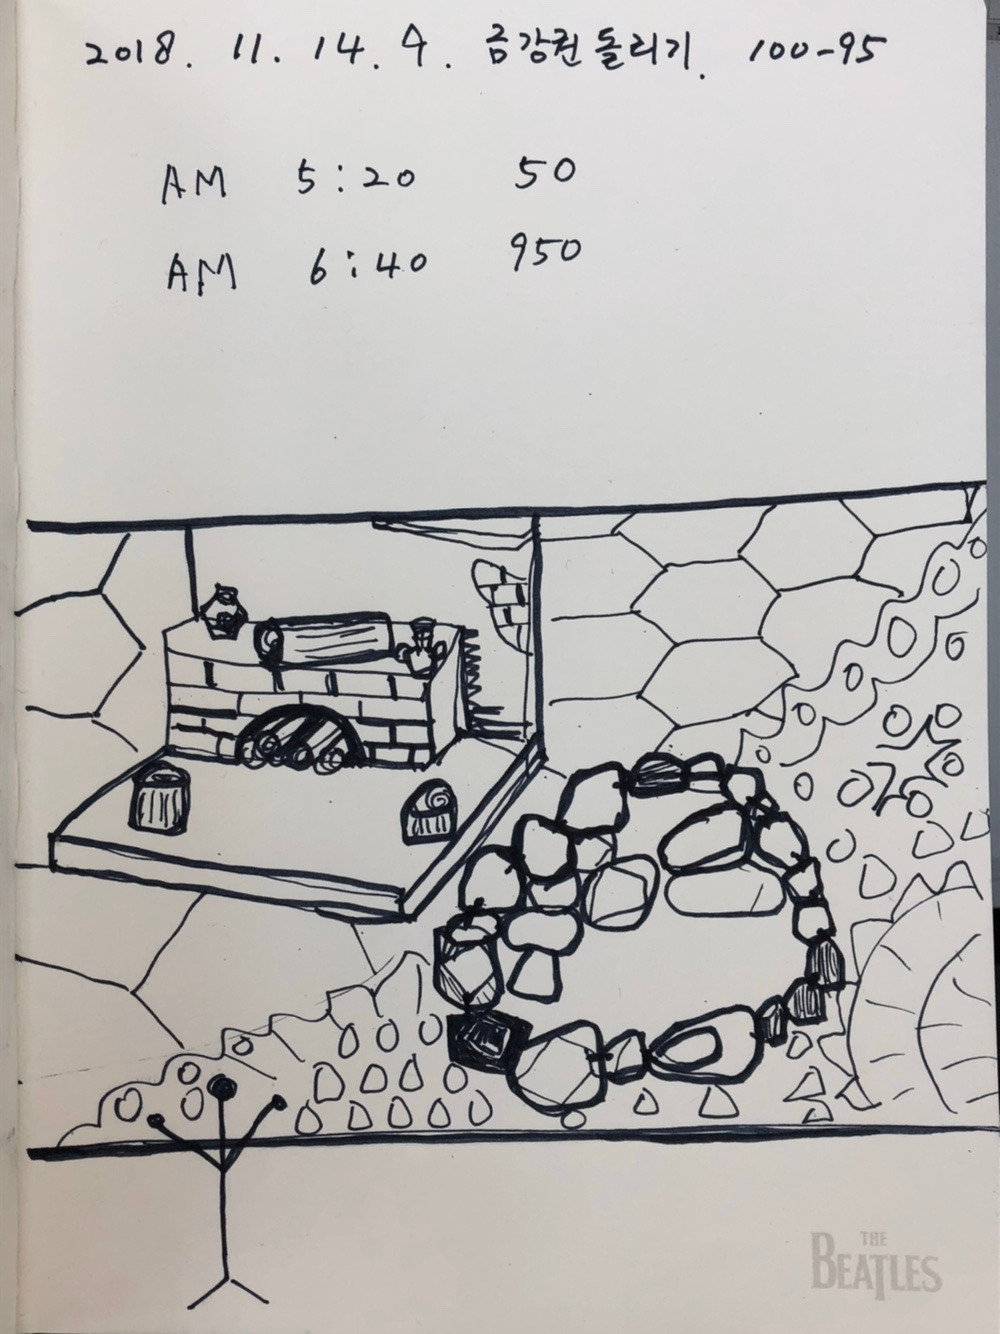 2018. 11. 14. 수. 금강권 돌리기. 100-95
AM 5:20 50
AM 6:40 950
THE
BEATLES